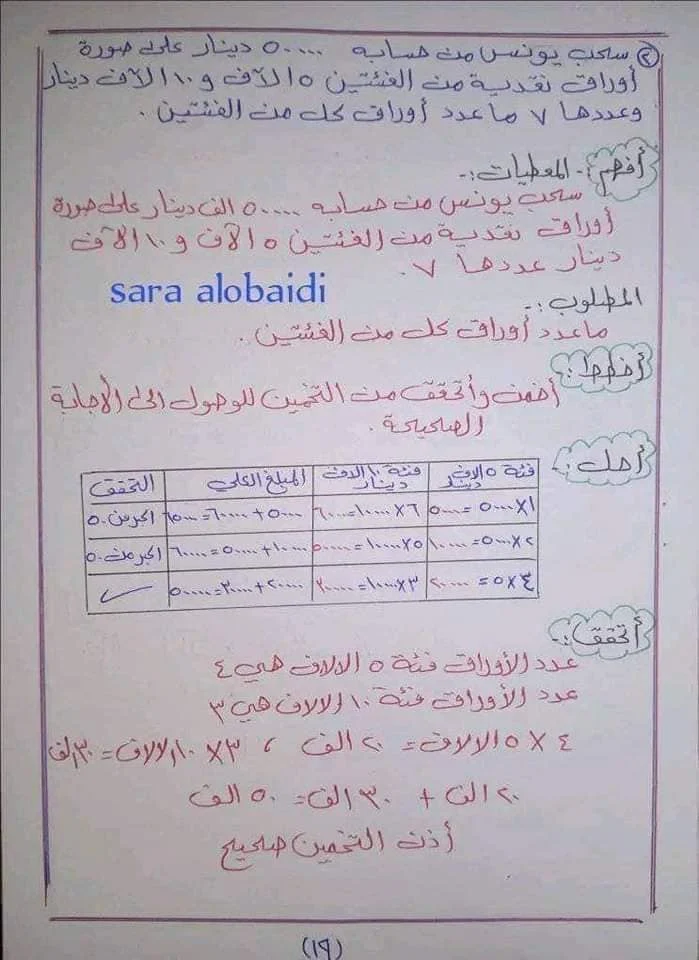 ٢) سحب يونس من حسابه ٥٠٠٠٠ دينار على صورة
أوراق نقدية من الفئتين ٥ الآف و ١٠ الآف دينار
وعددها ٧ ماعدد أوراق كل من الفئتين .
أفهم :- المعطيات :-
سحب يونس من حسابه ٥٠٠٠٠ الف دينار على صورة
أوراق نقدية من الفئتين ٥ الآف و ١٠ الآف
دينار عددها ٧.
sara alobaidi
المطلوب :-
ماعدد أوراق كل من الفئتين .
أخطط :-
أخمن وأتحقق من التخمين للوصول الى الأجابة
الصحيحة .
أحل :-
فئة ٥ الاف دينار فئة ١٠ الاف دينار المبلغ الكلي التحقق
١×٥٠٠٠ = ٥٠٠٠ ٦×١٠٠٠٠=٦٠٠٠٠ ٥٠٠٠+٦٠٠٠٠=٦٥٠٠٠ اكبر من ٥٠
٢×٥٠٠٠=١٠٠٠٠ ٥×١٠٠٠٠=٥٠٠٠٠ ١٠٠٠٠+٥٠٠٠٠=٦٠٠٠٠ اكبر من ٥٠
٤×٥ = ٢٠٠٠٠ ٣×١٠٠٠٠=٣٠٠٠٠ ٢٠٠٠٠+٣٠٠٠٠=٥٠٠٠٠ ✓
أتحقق :-
عدد الأوراق فئة ٥ الالاف هي ٤
عدد الأوراق فئة ١٠ الالاف هي ٣
٤ × ٥ الالاف = ٢٠ الف ، ٣×١٠ الالاف = ٣٠ الف
٢٠ الف + ٣٠ الف = ٥٠ الف
أذن التخمين صحيح
(١٩)